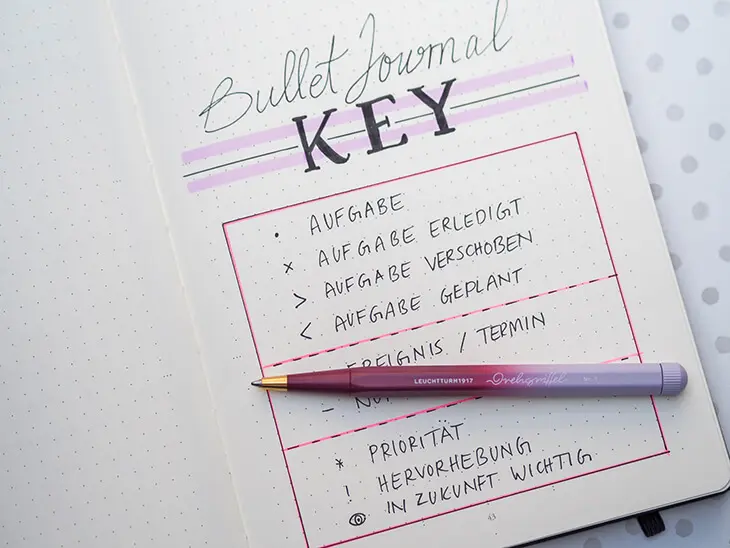 Bullet Journal
KEY
• AUFGABE
× AUFGABE ERLEDIGT
> AUFGABE VERSCHOBEN
< AUFGABE GEPLANT
EREIGNIS / TERMIN
LEUCHTTURM1917 Drehgriffel
* PRIORITÄT
! HERVORHEBUNG
IN ZUKUNFT WICHTIG